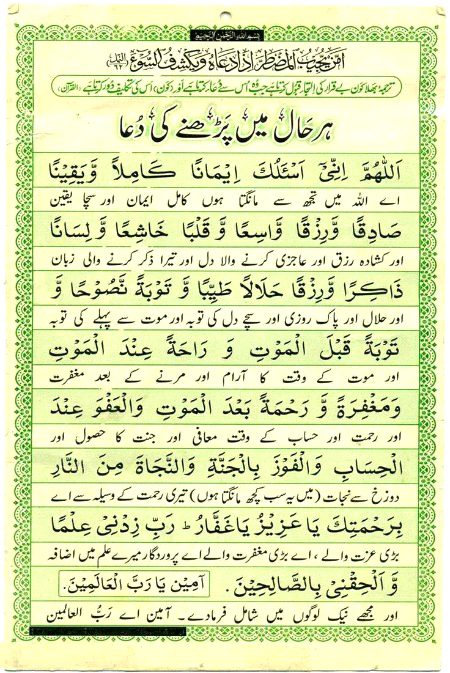 بسم الله الرحمن الرحيم
امن يجيب المضطر اذا دعاه ويكشف السوء
ترجمہ: بھلا کون بے قرار کی التجا قبول کرتا ہے جب وہ اُس سے دعا کرتا ہے اور (کون) اُس کی تکلیف دُور کرتا ہے (القرآن)
ہر حال میں پڑھنے کی دُعا
اَللّٰهُمَّ اِنِّىْۤ اَسْئَلُكَ اِيْمَانًا كَامِلًا وَّيَقِيْنًا
اے اللہ میں تجھ سے مانگتا ہوں کامل ایمان اور سچا یقین
صَادِقًا وَّرِزْقًا وَّاسِعًا وَّ قَلْبًا خَاشِعًا وَّ لِسَانًا
اور کشادہ رزق اور عاجزی کرنے والا دل اور تیرا ذکر کرنے والی زبان
ذَاكِرًا وَّرِزْقًا حَلَالًا طَيِّبًا وَّ تَوْبَةً نَّصُوْحًا وَّ
اور حلال اور پاک روزی اور سچے دل کی توبہ اور موت سے پہلے کی توبہ
تَوْبَةً قَبْلَ الْمَوْتِ وَ رَاحَةً عِنْدَ الْمَوْتِ
اور موت کے وقت کا آرام اور مرنے کے بعد مغفرت
وَمَغْفِرَةً وَّ رَحْمَةً بَعْدَ الْمَوْتِ وَالْعَفْوَ عِنْدَ
اور رحمت اور حساب کے وقت معافی اور جنت کا حصول اور
الْحِسَابِ وَالْفَوْزَ بِالْجَنَّةِ وَالنَّجَاةَ مِنَ النَّارِ
دوزخ سے نجات (میں یہ سب کچھ مانگتا ہوں) تیری رحمت کے وسیلہ سے اے
بِرَحْمَتِكَ يَا عَزِيْزُ يَاغَفَّارُ ط رَبِّ زِدْنِىْ عِلْمًا
بڑی عزت والے ، اے بڑی مغفرت والے اے پروردگار میرے علم میں اضافہ
وَّ اَلْحِقْنِىْ بِالصَّالِحِيْنَ. اٰمِيْن يَا رَبَّ الْعَالَمِيْنَ.
اور مجھے نیک لوگوں میں شامل فرمادے۔ آمین اے رَبُّ العالمین